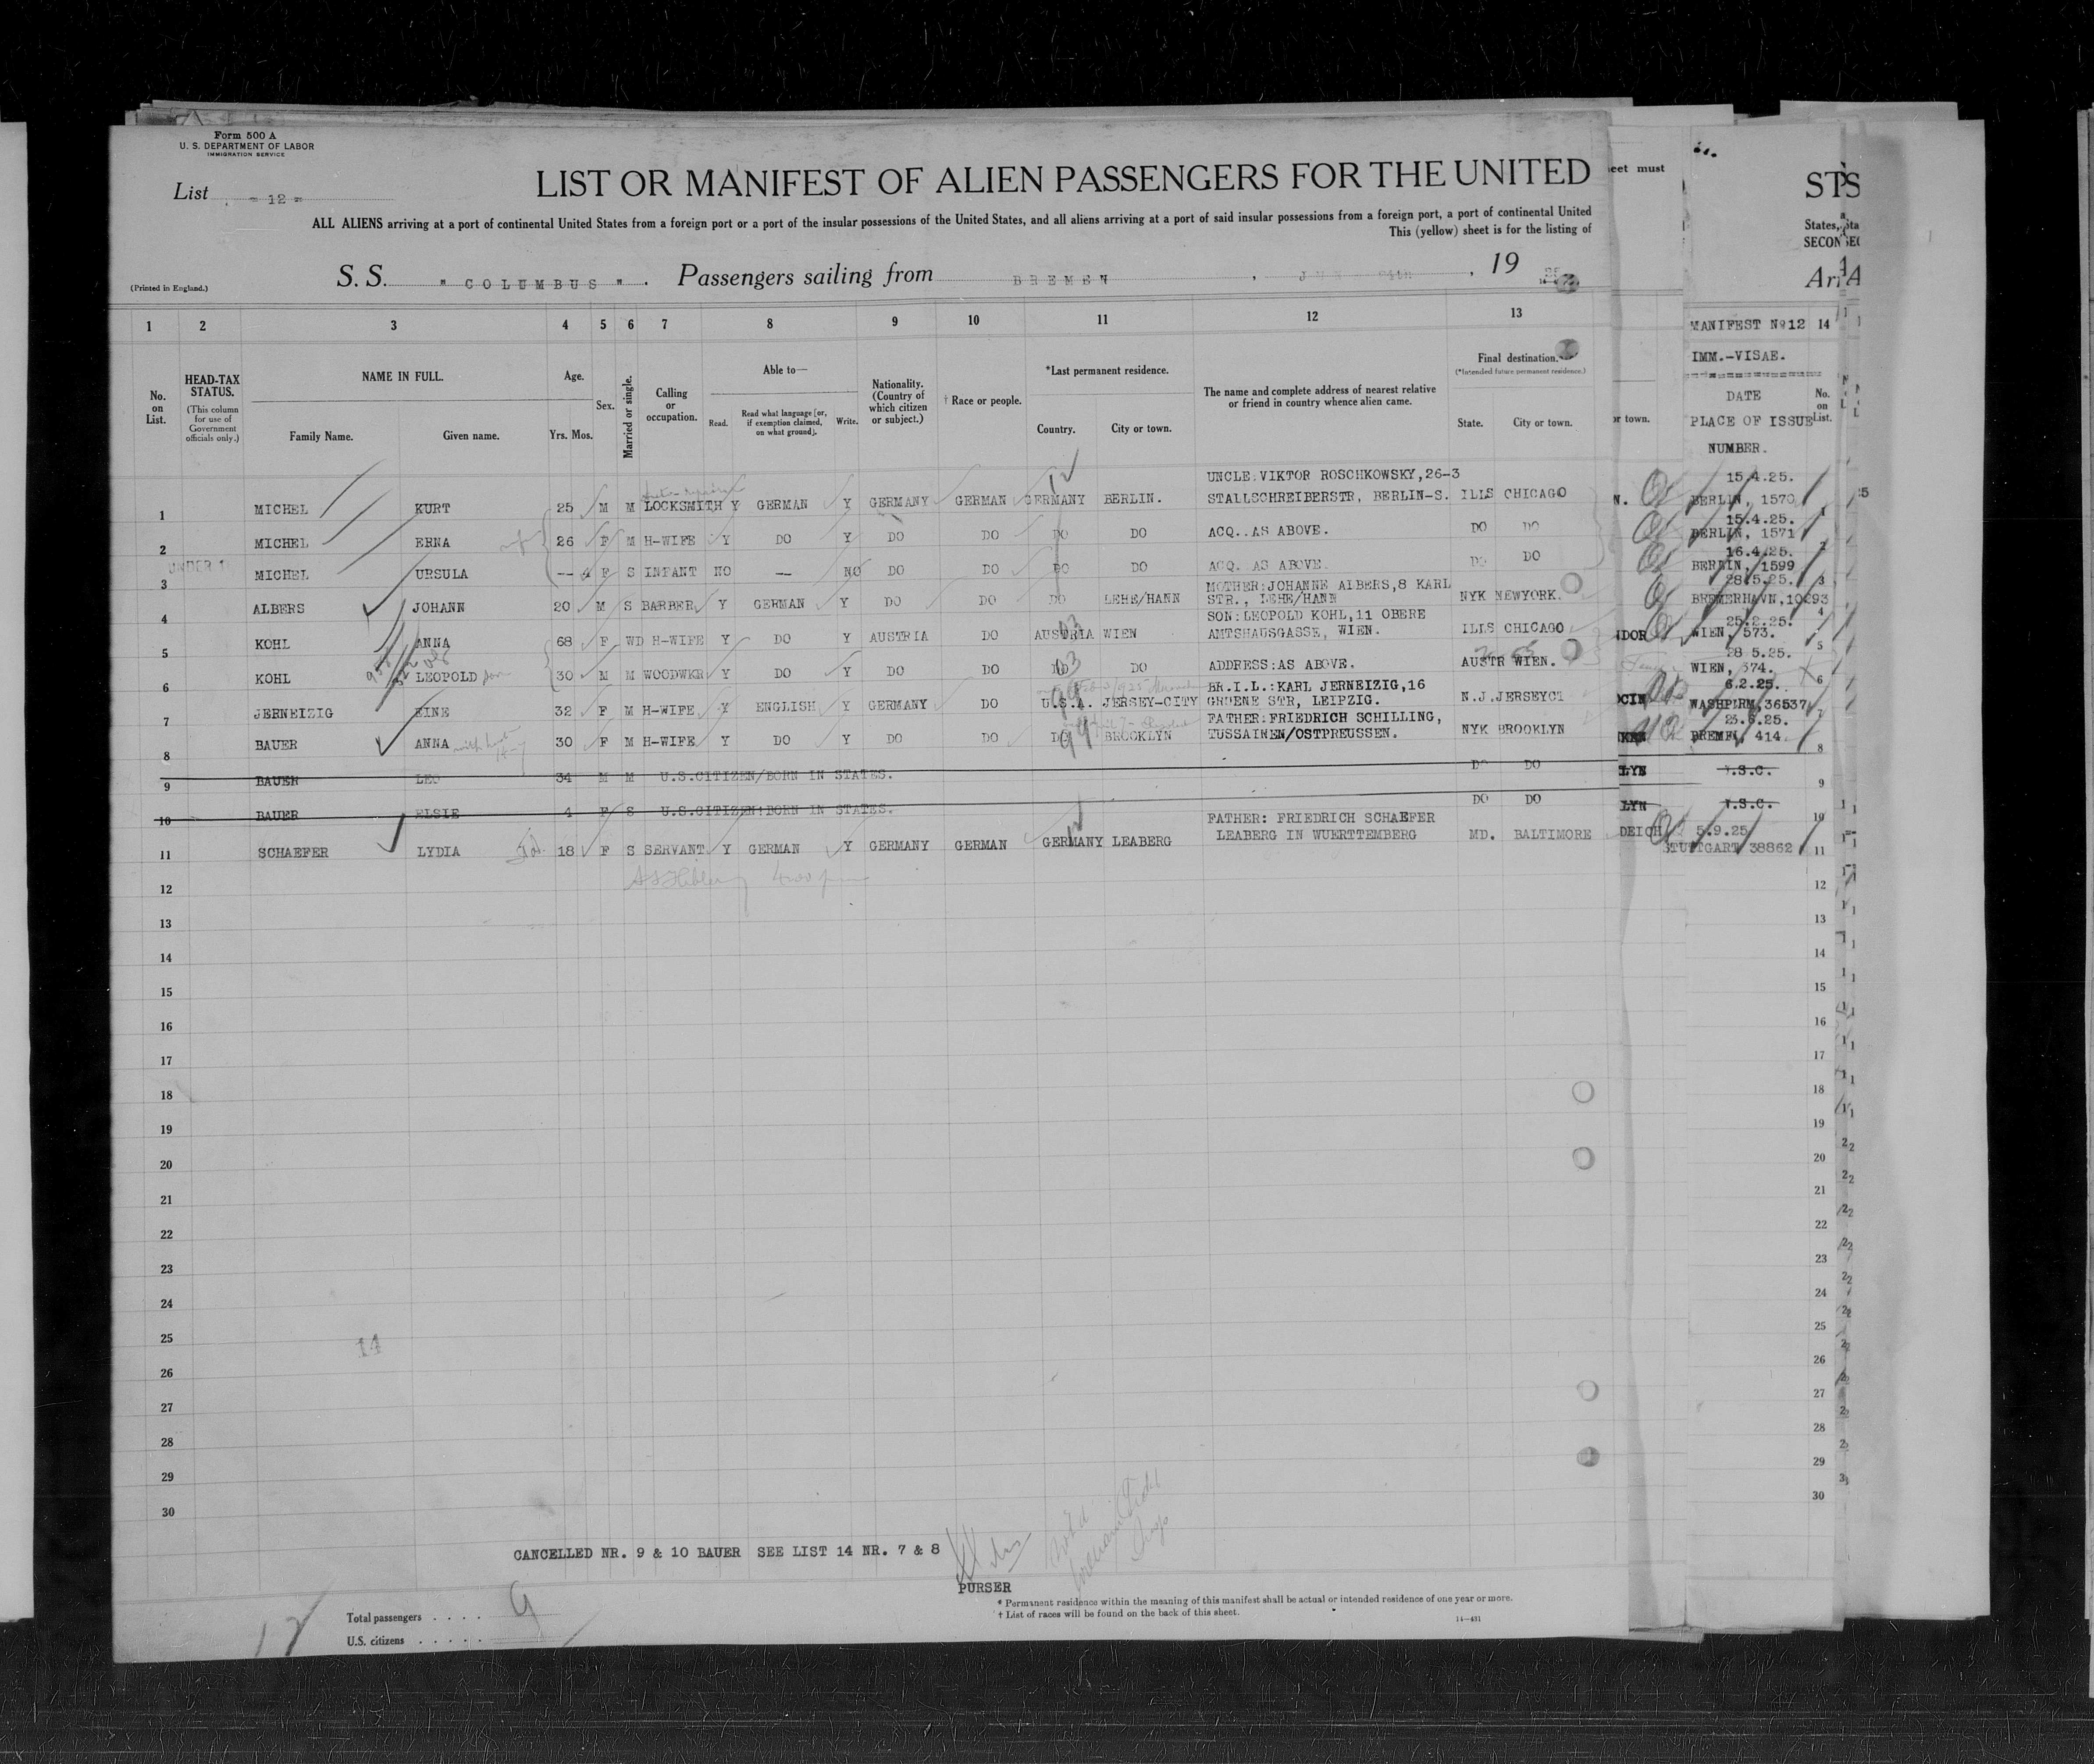 Form 500 A
U. S. DEPARTMENT OF LABOR
IMMIGRATION SERVICE
List - 12 -
LIST OR MANIFEST OF ALIEN PASSENGERS FOR THE UNITED
ALL ALIENS arriving at a port of continental United States from a foreign port or a port of the insular possessions of the United States, and all aliens arriving at a port of said insular possessions from a foreign port, a port of continental United
This (yellow) sheet is for the listing of
(Printed in England.)
S. S. " COLUMBUS ". Passengers sailing from BREMEN, 19
1 2 3 4 5 6 7 8 9 10 11 12 13
No. on List.
HEAD-TAX STATUS.
(This column for use of Government officials only.)
NAME IN FULL.
Family Name. Given name.
Age.
Yrs. Mos.
Sex.
Married or single.
Calling or occupation.
Able to—
Read. Read what language [or, if exemption claimed, on what ground]. Write.
Nationality. (Country of which citizen or subject.)
† Race or people.
*Last permanent residence.
Country. City or town.
The name and complete address of nearest relative or friend in country whence alien came.
Final destination.
(*Intended future permanent residence.)
State. City or town.
eet must
or town.
STS
States,
SECON
MANIFEST No 12 14
IMM.-VISAE.
DATE
PLACE OF ISSUE
NUMBER.
No. on List.
UNCLE:VIKTOR ROSCHKOWSKY,26-3 15.4.25.
1 MICHEL KURT 25 M M LOCKSMITH Y GERMAN Y GERMANY GERMAN GERMANY BERLIN. STALLSCHREIBERSTR, BERLIN-S. ILLS CHICAGO N. BERLIN, 1570
15.4.25. 1
2 MICHEL ERNA 26 F M H-WIFE Y DO Y DO DO DO DO ACQ..AS ABOVE. DO DO BERLIN, 1571
UNDER 1 16.4.25. 2
3 MICHEL URSULA -- 4 F S INFANT NO -- NO DO DO DO DO ACQ. AS ABOVE. DO DO BERLIN, 1599
MOTHER:JOHANNE ALBERS,8 KARL 28.5.25. 3
4 ALBERS JOHANN 20 M S BARBER Y GERMAN Y DO DO DO LEHE/HANN STR., LEHE/HANN NYK NEWYORK. BREMERHAVN,10293
SON:LEOPOLD KOHL,11 OBERE 25.2.25. 4
5 KOHL ANNA 68 F WD H-WIFE Y DO Y AUSTRIA DO AUSTRIA WIEN AMTSHAUSGASSE, WIEN. ILLS CHICAGO NDOR WIEN, 573.
28 5.25. 5
6 KOHL LEOPOLD son 30 M M WOODWKR Y DO Y DO DO DO DO ADDRESS:AS ABOVE. AUSTR WIEN. WIEN, 574.
BR.I.L.:KARL JERNEIZIG,16 6.2.25. 6
7 JERNEIZIG EINE 32 F M H-WIFE Y ENGLISH Y GERMANY DO U.S.A. JERSEY-CITY GRUENE STR, LEIPZIG. N.J.JERSEYCI OCIN WASHPERM,36537
FATHER:FRIEDRICH SCHILLING, 7
8 BAUER ANNA 30 F M H-WIFE Y DO Y DO DO DO BROOKLYN TUSSAINEN/OSTPREUSSEN. NYK BROOKLYN BREMEN, 414. 8
9 BAUER LEO 34 M M U.S.CITIZEN/BORN IN STATES. DO DO LYN U.S.C. 9
10 BAUER ELSIE 4 F S U.S.CITIZEN:BORN IN STATES. DO DO LYN U.S.C. 10
FATHER: FRIEDRICH SCHAEFER
11 SCHAEFER LYDIA 18 F S SERVANT Y GERMAN Y GERMANY GERMAN GERMANY LEABERG LEABERG IN WUERTTEMBERG MD. BALTIMORE DEICH 5.9.25
STUTTGART 38862 11
12 12
13 13
14 14
15 15
16 16
17 17
18 18
19 19
20 20
21 21
22 22
23 23
24 24
25 25
14
26 26
27 27
28 28
29 29
30 30
CANCELLED NR. 9 & 10 BAUER SEE LIST 14 NR. 7 & 8
PURSER
12
Total passengers . . . . 9
U.S. citizens . . . . .
* Permanent residence within the meaning of this manifest shall be actual or intended residence of one year or more.
† List of races will be found on the back of this sheet.
14-431